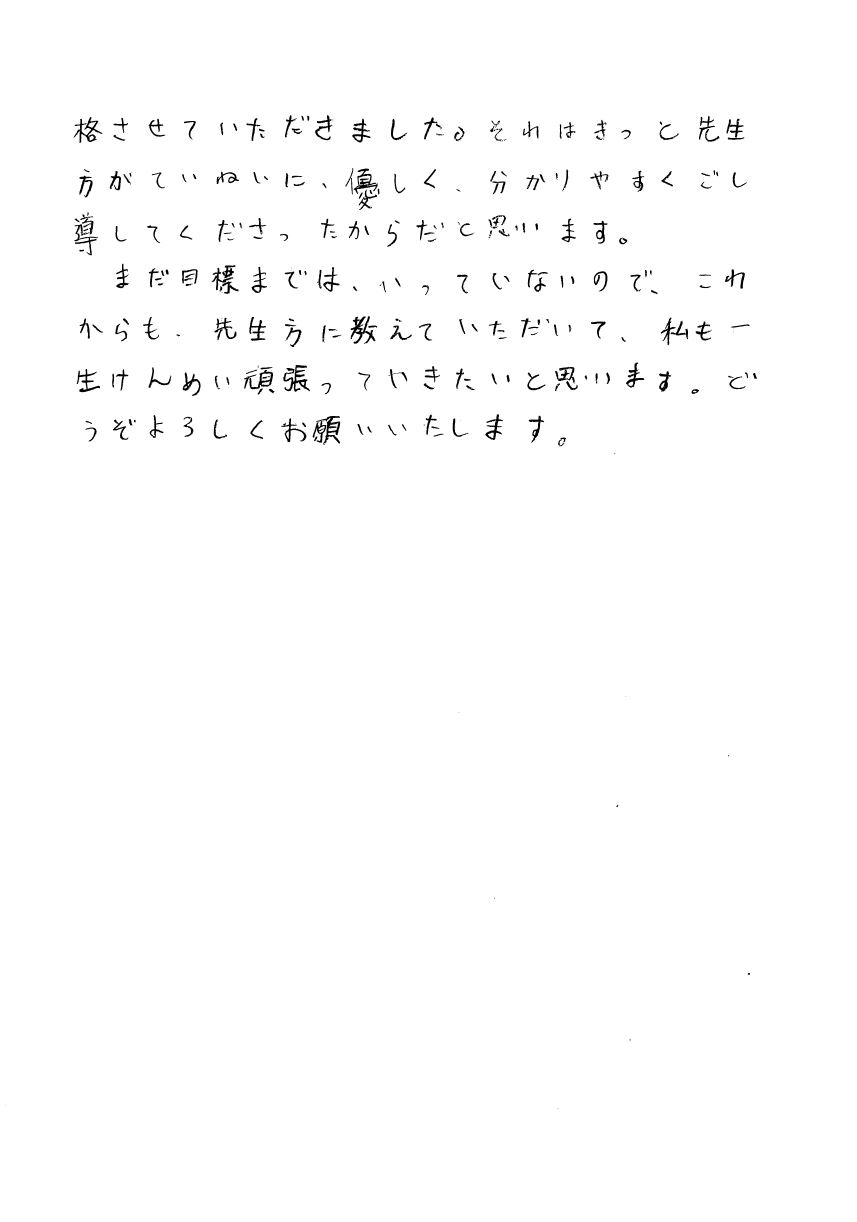 格させていただきました。それはきっと先生
方がていねいに、優しく、分かりやすくごし
導してくださったからだと思います。
まだ目標までは、いっていないので、これ
からも、先生方に教えていただいて、私も一
生けんめい頑張ってやきたいと思います。ど
うぞよろしくお願いいたします。